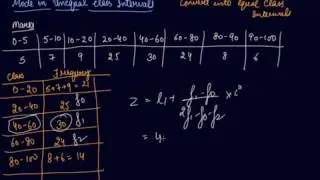 Mode in Unequal Class Interval
Convert into Equal Class
Interval
Marks
0-5 5-10 10-20 20-40 40-60 60-80 80-90 90-100
5 7 9 25 30 24 8 6
Class Frequency
0-20 5+7+9=21
20-40 25 f0
40-60 30 f1
60-80 24 f2
80-100 8+6=14
Z = l1 + f1-f0 / 2f1-f0-f2 × i
=